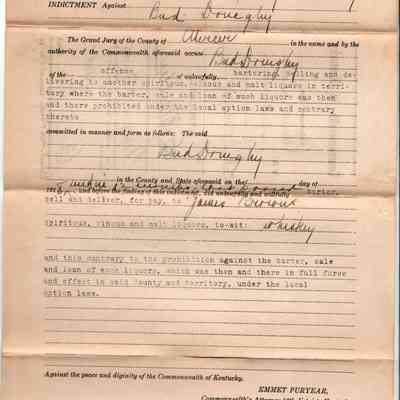 INDICTMENT Against Bud Doneghy
The Grand Jury of the County of Mercer in the name and by the
authority of the Commonwealth aforesaid accuse Bud Doneghy
of the offense of unlawfully bartering, selling and de-
livering to another spiritous, vinous and malt liquors in terri-
tory where the barter, sale and loan of such liquors was then
and there prohibited under the local option laws and contrary
thereto
committed in manner and form as follows: The said
Bud Doneghy
in the County and State aforesaid on the day of
191 and before the finding of this indictment, did unlawfully and wilfully barter,
sell and deliver, for pay, to James
spiritous, vinous and malt liquors, to-wit: whiskey
and this contrary to the prohibition against the barter, sale
and loan of such liquors, which was then and there in full force
and effect in said County and territory, under the local
option laws.
Against the peace and dignity of the Commonwealth of Kentucky.
EMMET PURYEAR,
Commonwealth's Attorney